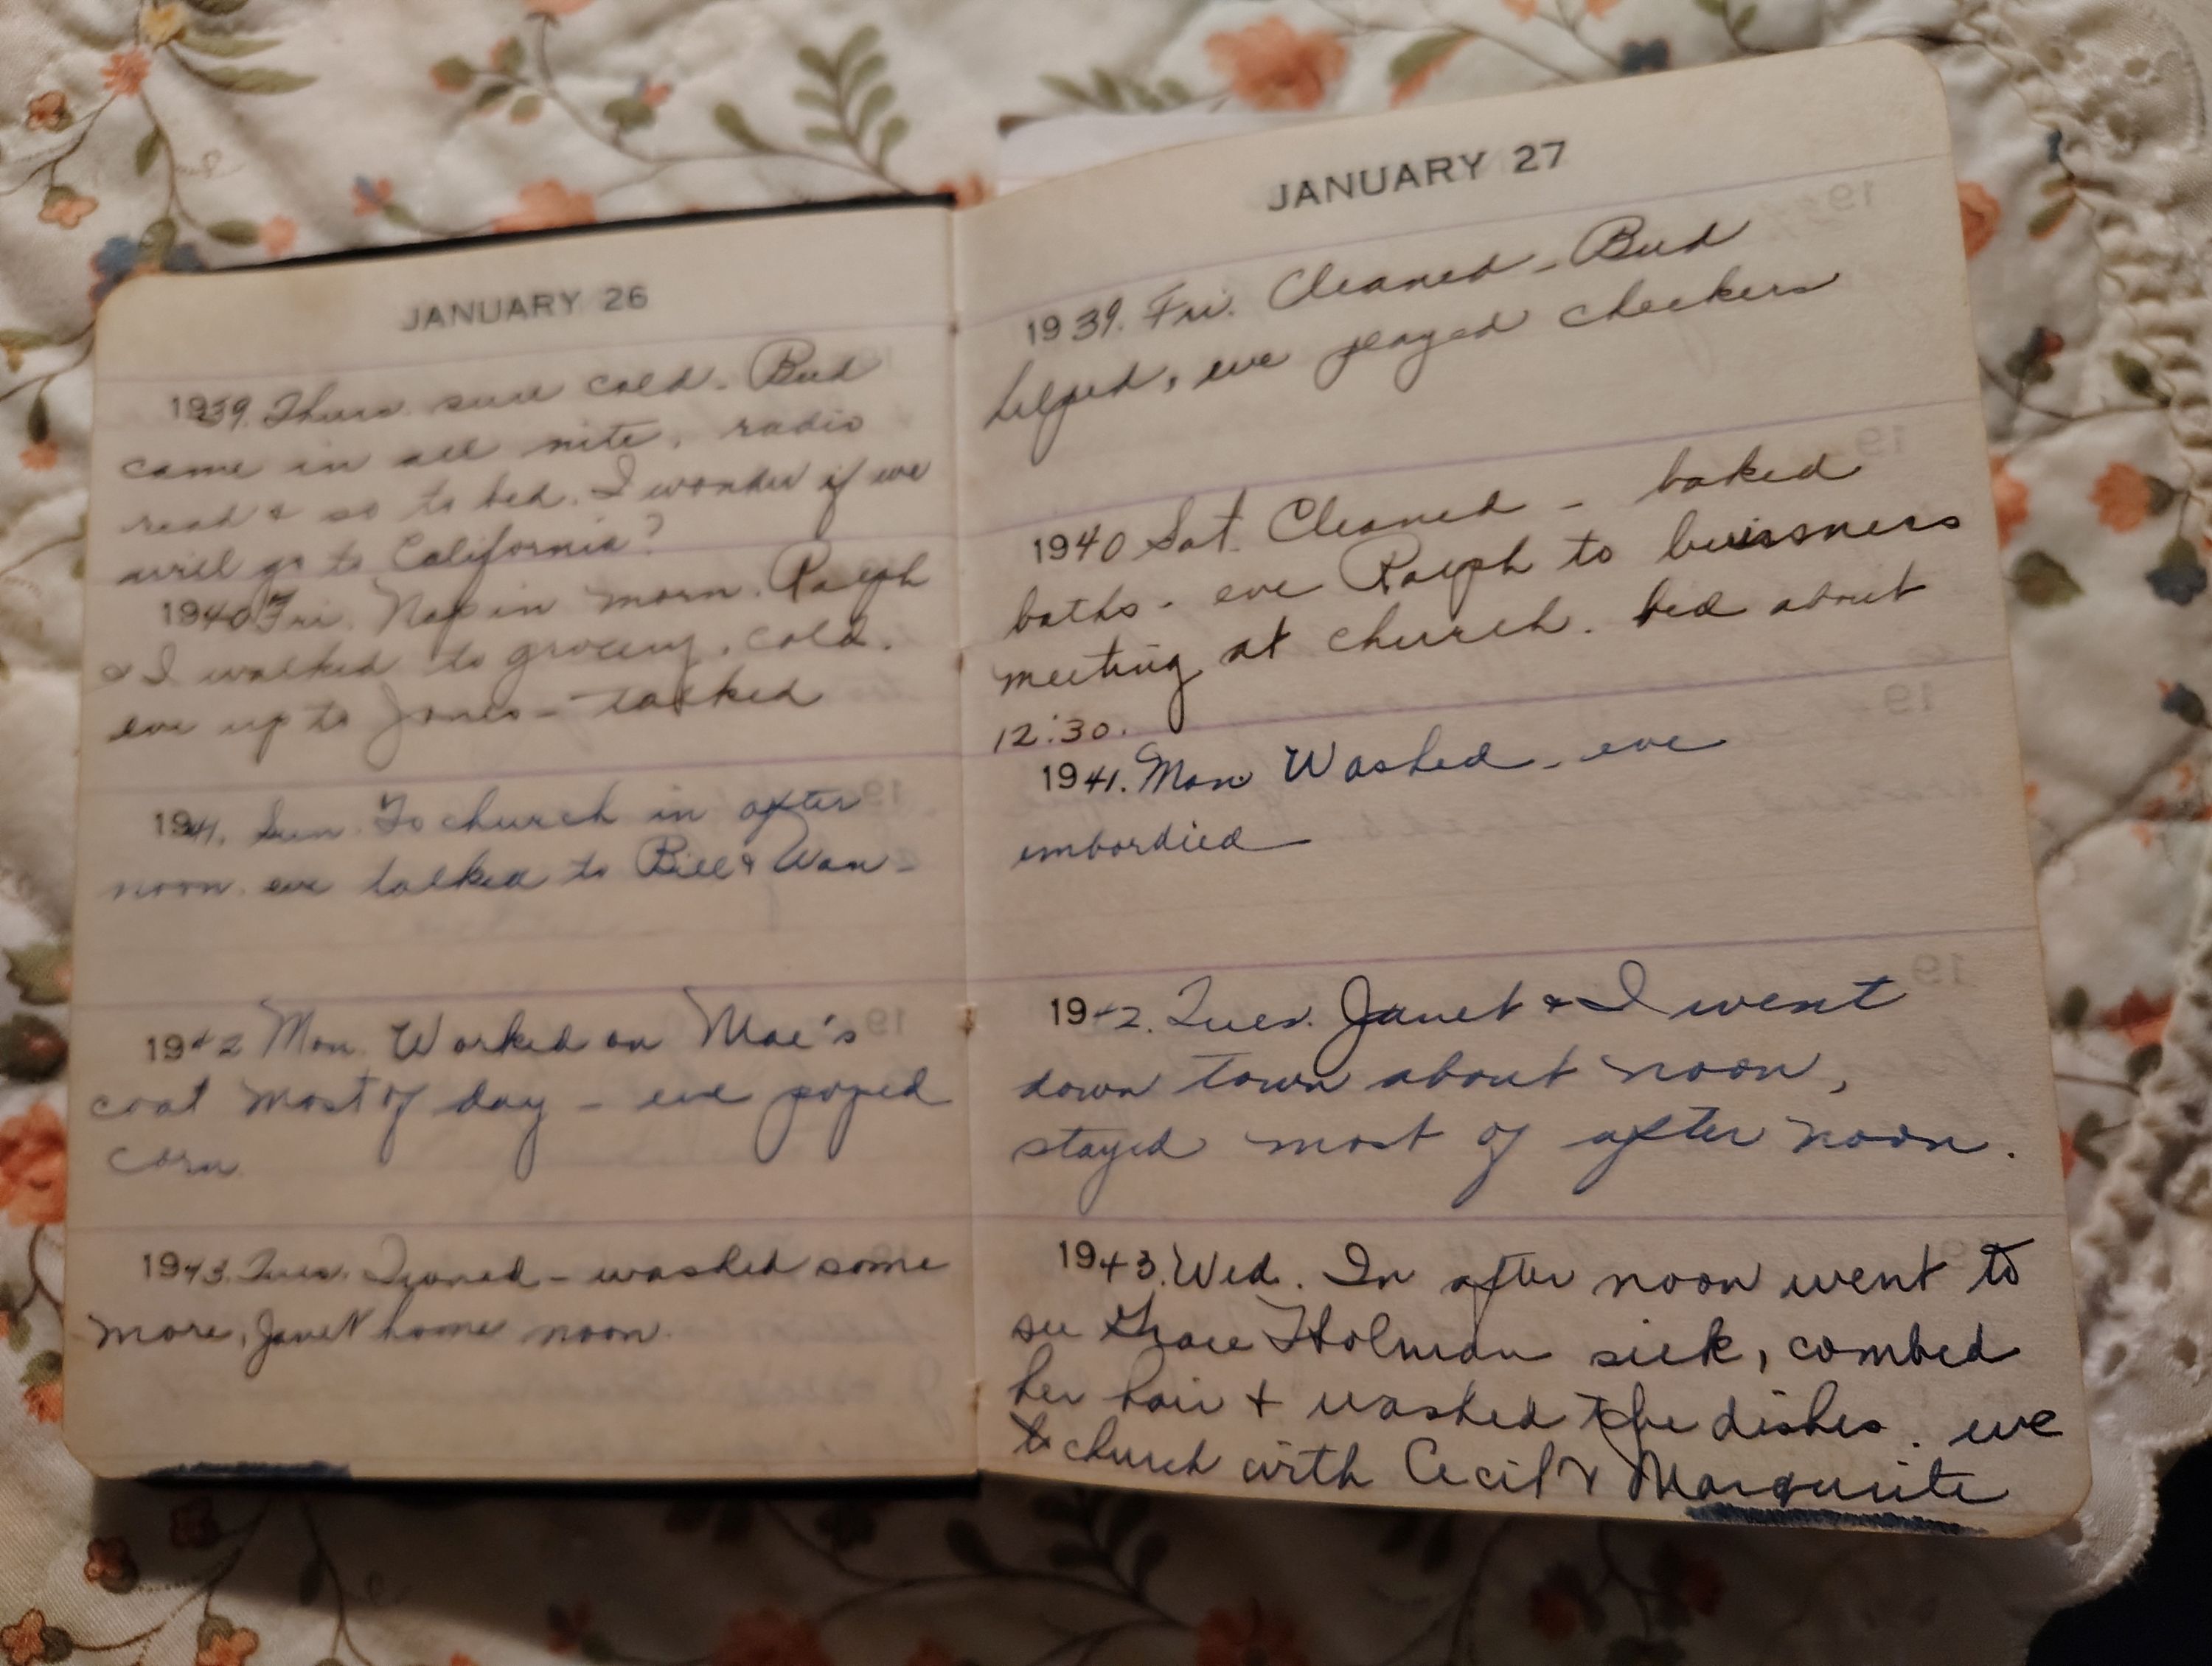 JANUARY 26
1939. Thurs. sure cold. Bud
came in all nite, radio
read & so to bed. I wonder if we
will go to California?
1940 Fri. Nap in morn. Ralph
& I walked to grocery, cold.
eve up to Jones - talked
1941. Sun. To church in after
noon. eve talked to Bill & Wan-
1942 Mon. Worked on Mae's
coat most of day - eve poped
corn
1943. Tues. Ironed - washed some
more, Janet home noon.
JANUARY 27
1939. Fri. Cleaned - Bud
helped, eve played checkers
1940 Sat. Cleaned - baked
baths - eve Ralph to buissness
meeting at church. bed about
12:30.
1941. Mon Washed - eve
embordied
1942. Tues. Janet & I went
down town about noon,
stayed most of after noon.
1943. Wed. In after noon went to
see Grace Holman sick, combed
her hair + washed the dishes. eve
to church with Cecil & Margurite